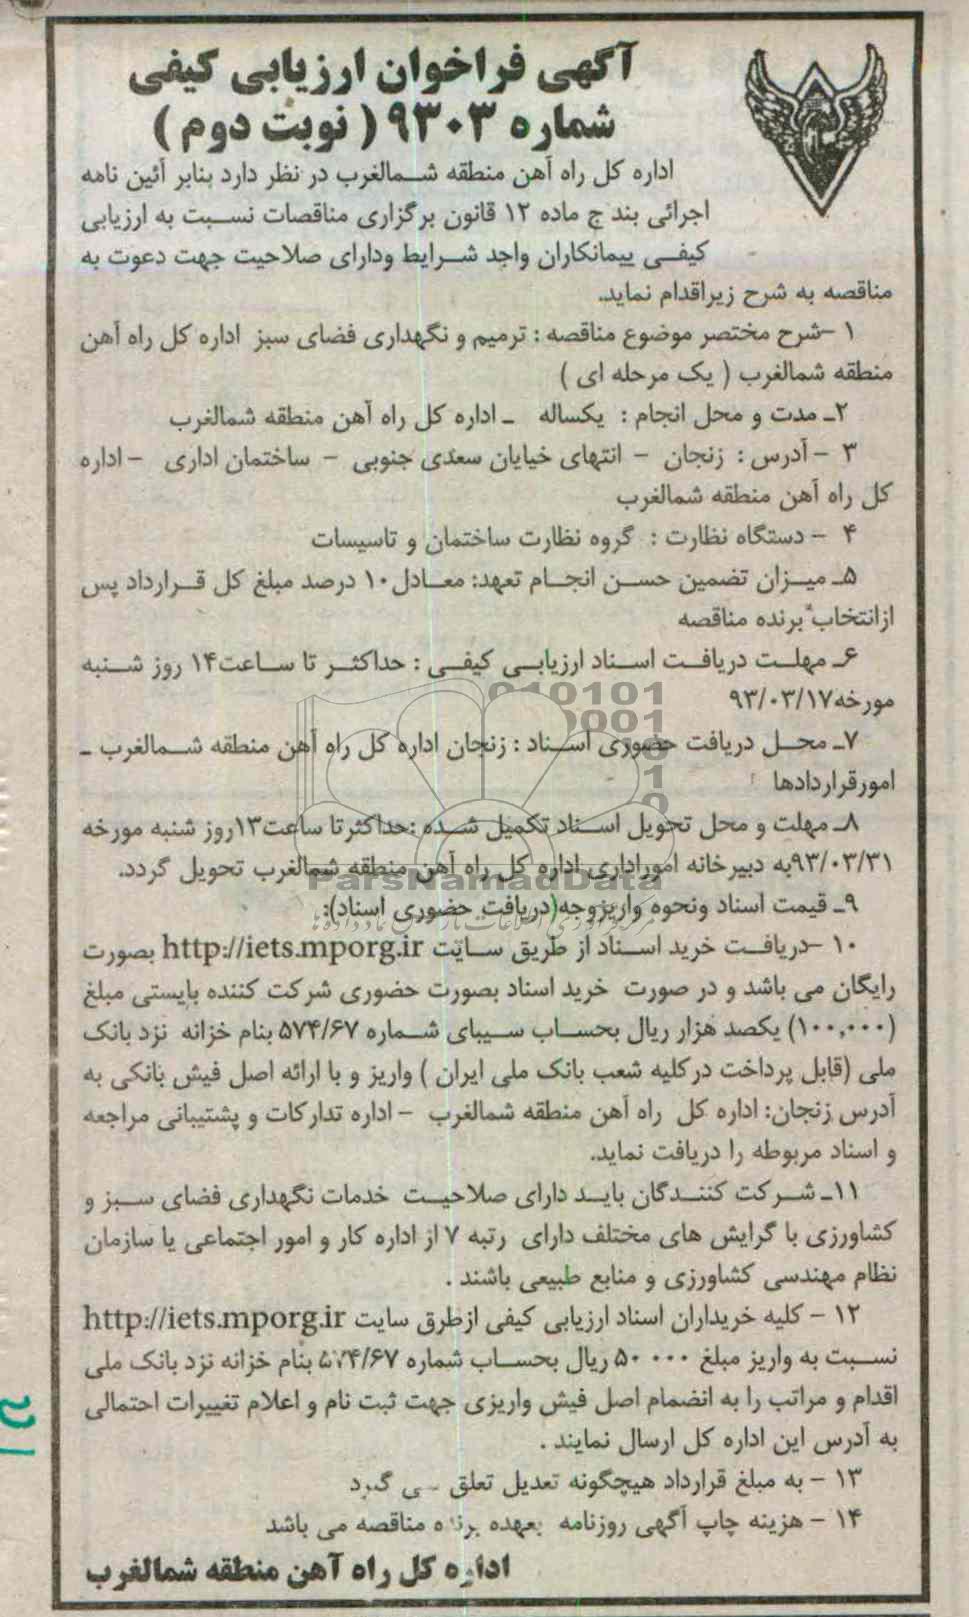 آگهی فراخوان ارزیابی کیفی
شماره ۹۳۰۳ ( نوبت دوم )
اداره کل راه آهن منطقه شمالغرب در نظر دارد بنابر آئین نامه
اجرائی بند ج ماده ۱۲ قانون برگزاری مناقصات نسبت به ارزیابی
کیفی پیمانکاران واجد شرایط ودارای صلاحیت جهت دعوت به
مناقصه به شرح زیراقدام نماید.
۱ –شرح مختصر موضوع مناقصه : ترمیم و نگهداری فضای سبز اداره کل راه آهن
منطقه شمالغرب ( یک مرحله ای )
۲ـ مدت و محل انجام : یکساله ـ اداره کل راه آهن منطقه شمالغرب
۳ – آدرس : زنجان – انتهای خیابان سعدی جنوبی – ساختمان اداری – اداره
کل راه آهن منطقه شمالغرب
۴ – دستگاه نظارت : گروه نظارت ساختمان و تاسیسات
۵ـ میزان تضمین حسن انجام تعهد: معادل ۱۰ درصد مبلغ کل قرارداد پس
ازانتخاب برنده مناقصه
۶ـ مهلت دریافت اسناد ارزیابی کیفی : حداکثر تا ساعت۱۴ روز شنبه
مورخه۹۳/۰۳/۱۷
010101
0001
۷ـ محل دریافت حضوری اسناد : زنجان اداره کل راه آهن منطقه شمالغرب ـ
امورقراردادها
۸ـ مهلت و محل تحویل اسناد تکمیل شده :حداکثرتا ساعت۱۳روز شنبه مورخه
۹۳/۰۳/۳۱به دبیرخانه اموراداری اداره کل راه آهن منطقه شمالغرب تحویل گردد.
ParsNamadData
۹ـ قیمت اسناد ونحوه واریزوجه(دریافت حضوری اسناد):
۱۰ –دریافت خرید اسناد از طریق سایت http://iets.mporg.ir بصورت
رایگان می باشد و در صورت خرید اسناد بصورت حضوری شرکت کننده بایستی مبلغ
(۱۰۰,۰۰۰) یکصد هزار ریال بحساب سیبای شماره ۵۷۴/۶۷ بنام خزانه نزد بانک
ملی (قابل پرداخت درکلیه شعب بانک ملی ایران ) واریز و با ارائه اصل فیش بانکی به
آدرس زنجان: اداره کل راه آهن منطقه شمالغرب – اداره تدارکات و پشتیبانی مراجعه
و اسناد مربوطه را دریافت نماید.
۱۱ـ شرکت کنندگان باید دارای صلاحیت خدمات نگهداری فضای سبز و
کشاورزی با گرایش های مختلف دارای رتبه ۷ از اداره کار و امور اجتماعی یا سازمان
نظام مهندسی کشاورزی و منابع طبیعی باشند .
۱۲ – کلیه خریداران اسناد ارزیابی کیفی ازطرق سایت http://iets.mporg.ir
نسبت به واریز مبلغ ۵۰ ۰۰۰ ریال بحساب شماره ۵۷۴/۶۷ بنام خزانه نزد بانک ملی
اقدام و مراتب را به انضمام اصل فیش واریزی جهت ثبت نام و اعلام تغییرات احتمالی
به آدرس این اداره کل ارسال نمایند .
۱۳ – به مبلغ قرارداد هیچگونه تعدیل تعلق می گیرد
۱۴ – هزینه چاپ آگهی روزنامه بعهده برنده مناقصه می باشد
اداره کل راه آهن منطقه شمالغرب